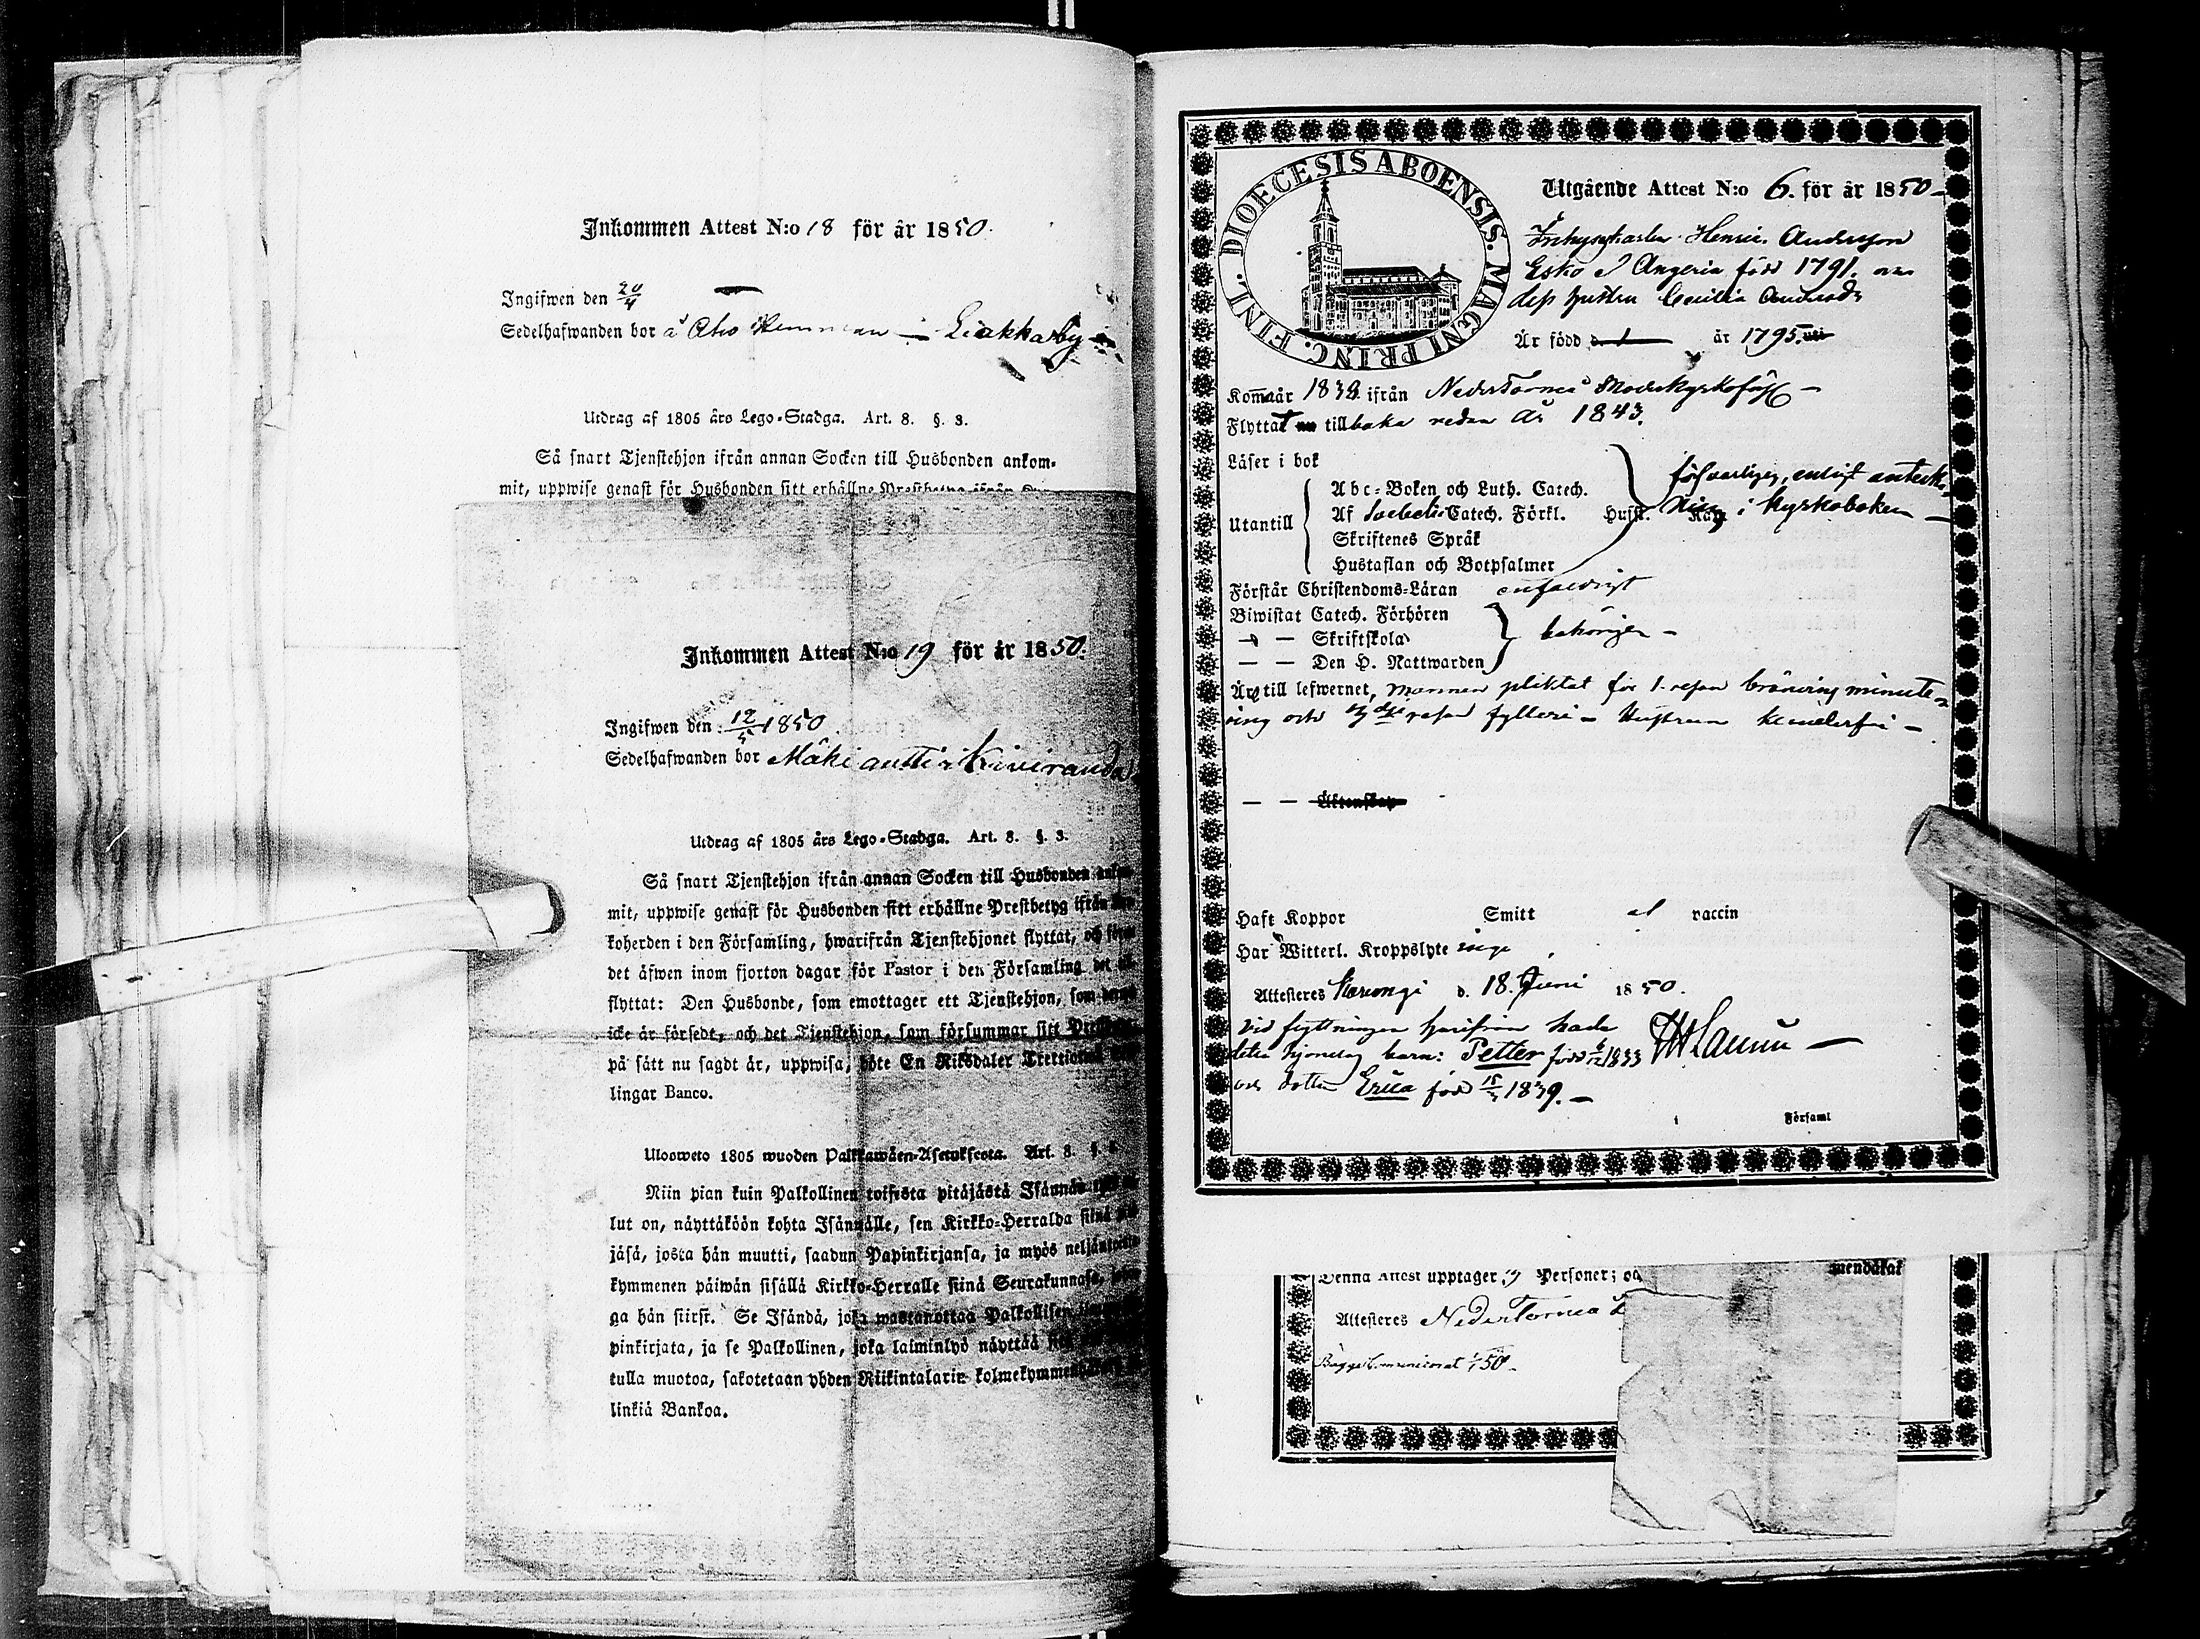 Inkommen Attest N:o 18 för år 1850.
Ingifwen den 20/4
Sedelhafwanden bor å Aho Hemman i Liakkaby
Utdrag af 1805 års Lego-Stadga. Art. 8. §. 3.
Så snart Tjenstehjon ifrån annan Socken till Husbonden ankom-
mit, uppwise genast för Husbonden sitt erhållne Prestbetyg ifrån
Inkommen Attest N:o 19 för år 1850.
Ingifwen den 12/5 1850
Sedelhafwanden bor Mäki antti i Kiviranda
Utdrag af 1805 års Lego-Stadga. Art. 8. §. 3.
Så snart Tjenstehjon ifrån annan Socken till Husbonden
mit, uppwise genast för Husbonden sitt erhållne Prestbetyg ifrån
koherden i den Församling, hwarifrån Tjenstehjonet flyttat, och
det äfwen inom fjorton dagar för Pastor i den Församling det
flyttat: Den Husbonde, som emottager ett Tjenstehjon, som
icke är försedt, och det Tjenstehjon, som försummar sitt
på sätt nu sagdt är, uppwisa, böte En Riksdaler
lingar Banco.
Ulosweto 1805 wuoden Palkkawäen-Asetuksesta. Art. 8. §.
Niin pian kuin Palkollinen toisesta pitäjästä Isännän
lut on, näyttäköön kohta Isännälle, sen Kirkko-Herralda siinä
jäsä, josta hän muutti, saadun Papinkirjansa, ja myös
kymmenen päiwän sisällä Kirkko-Herralle siinä Seurakunnasa,
ga hän siirsi. Se Isändä, joka wastanottaa Palkollisen
pinkirjata, ja se Palkollinen, joka laiminlyö näyttää
tulla muotoa, sakotetaan yhden Riikintalarin
linkiä Bankoa.
DIOECESIS ABOENSIS. MAGNI PRINC. FINL.
Utgående Attest N:o 6. för år 1850
Inhyseskarlen Henric Andersson
Esko i Angeria född 1791. och
dess hustru Cecilia Andersdr
Är född år 1795.
Kom år ifrån NederTorneå Moderkyrkoförs
Flyttat tillbaka redan år 1843.
Läser i bok
Utantill
Abc-Boken och Luth. Catech.
Af Svebelii Catech. Förkl. Hust.
Skriftenes Språk
Hustaflan och Botpsalmer
försvarligen, enligt anteck-
ning i kyrkoboken
Förstår Christendoms-Läran enfaldigt
Biwistat Catech. Förhören
Skriftskola
Den H. Nattwarden
behörigen
Äro till lefwernet, mannen pliktat för 1. resan bränvins minute-
ring och resan fylleri - Hustrun klanderfri -
Äktenskap
Haft Koppor Smitt af vaccin
Har Witterl. Kroppslyte inga
Attesteres Karungi d. 18. Juni 1850.
Vid flyttningen härifrån hade
detta hjonelag barn: Petter född 6/12 1833
och dottren Erica född 1839.
Församl
Denna Attest upptager Personer; oc
Attesteres NederTorneå
Bägge 50